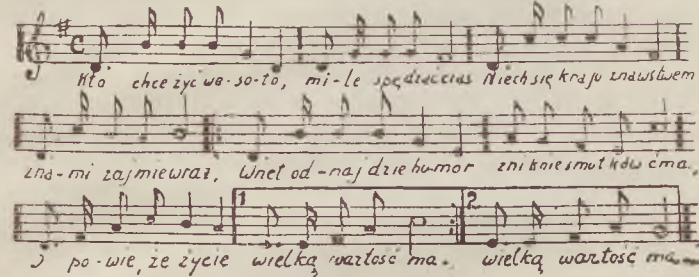 Kto chce żyć we-so-ło, mi-le spędzać czas Niech się kraju znawstwem
zna-mi zajmie wraz, Wnet od-naj dzie hu-mor zniknie smutków ćma,
1 2
I po-wie, że życie wielką wartość ma. wielką wartość ma.